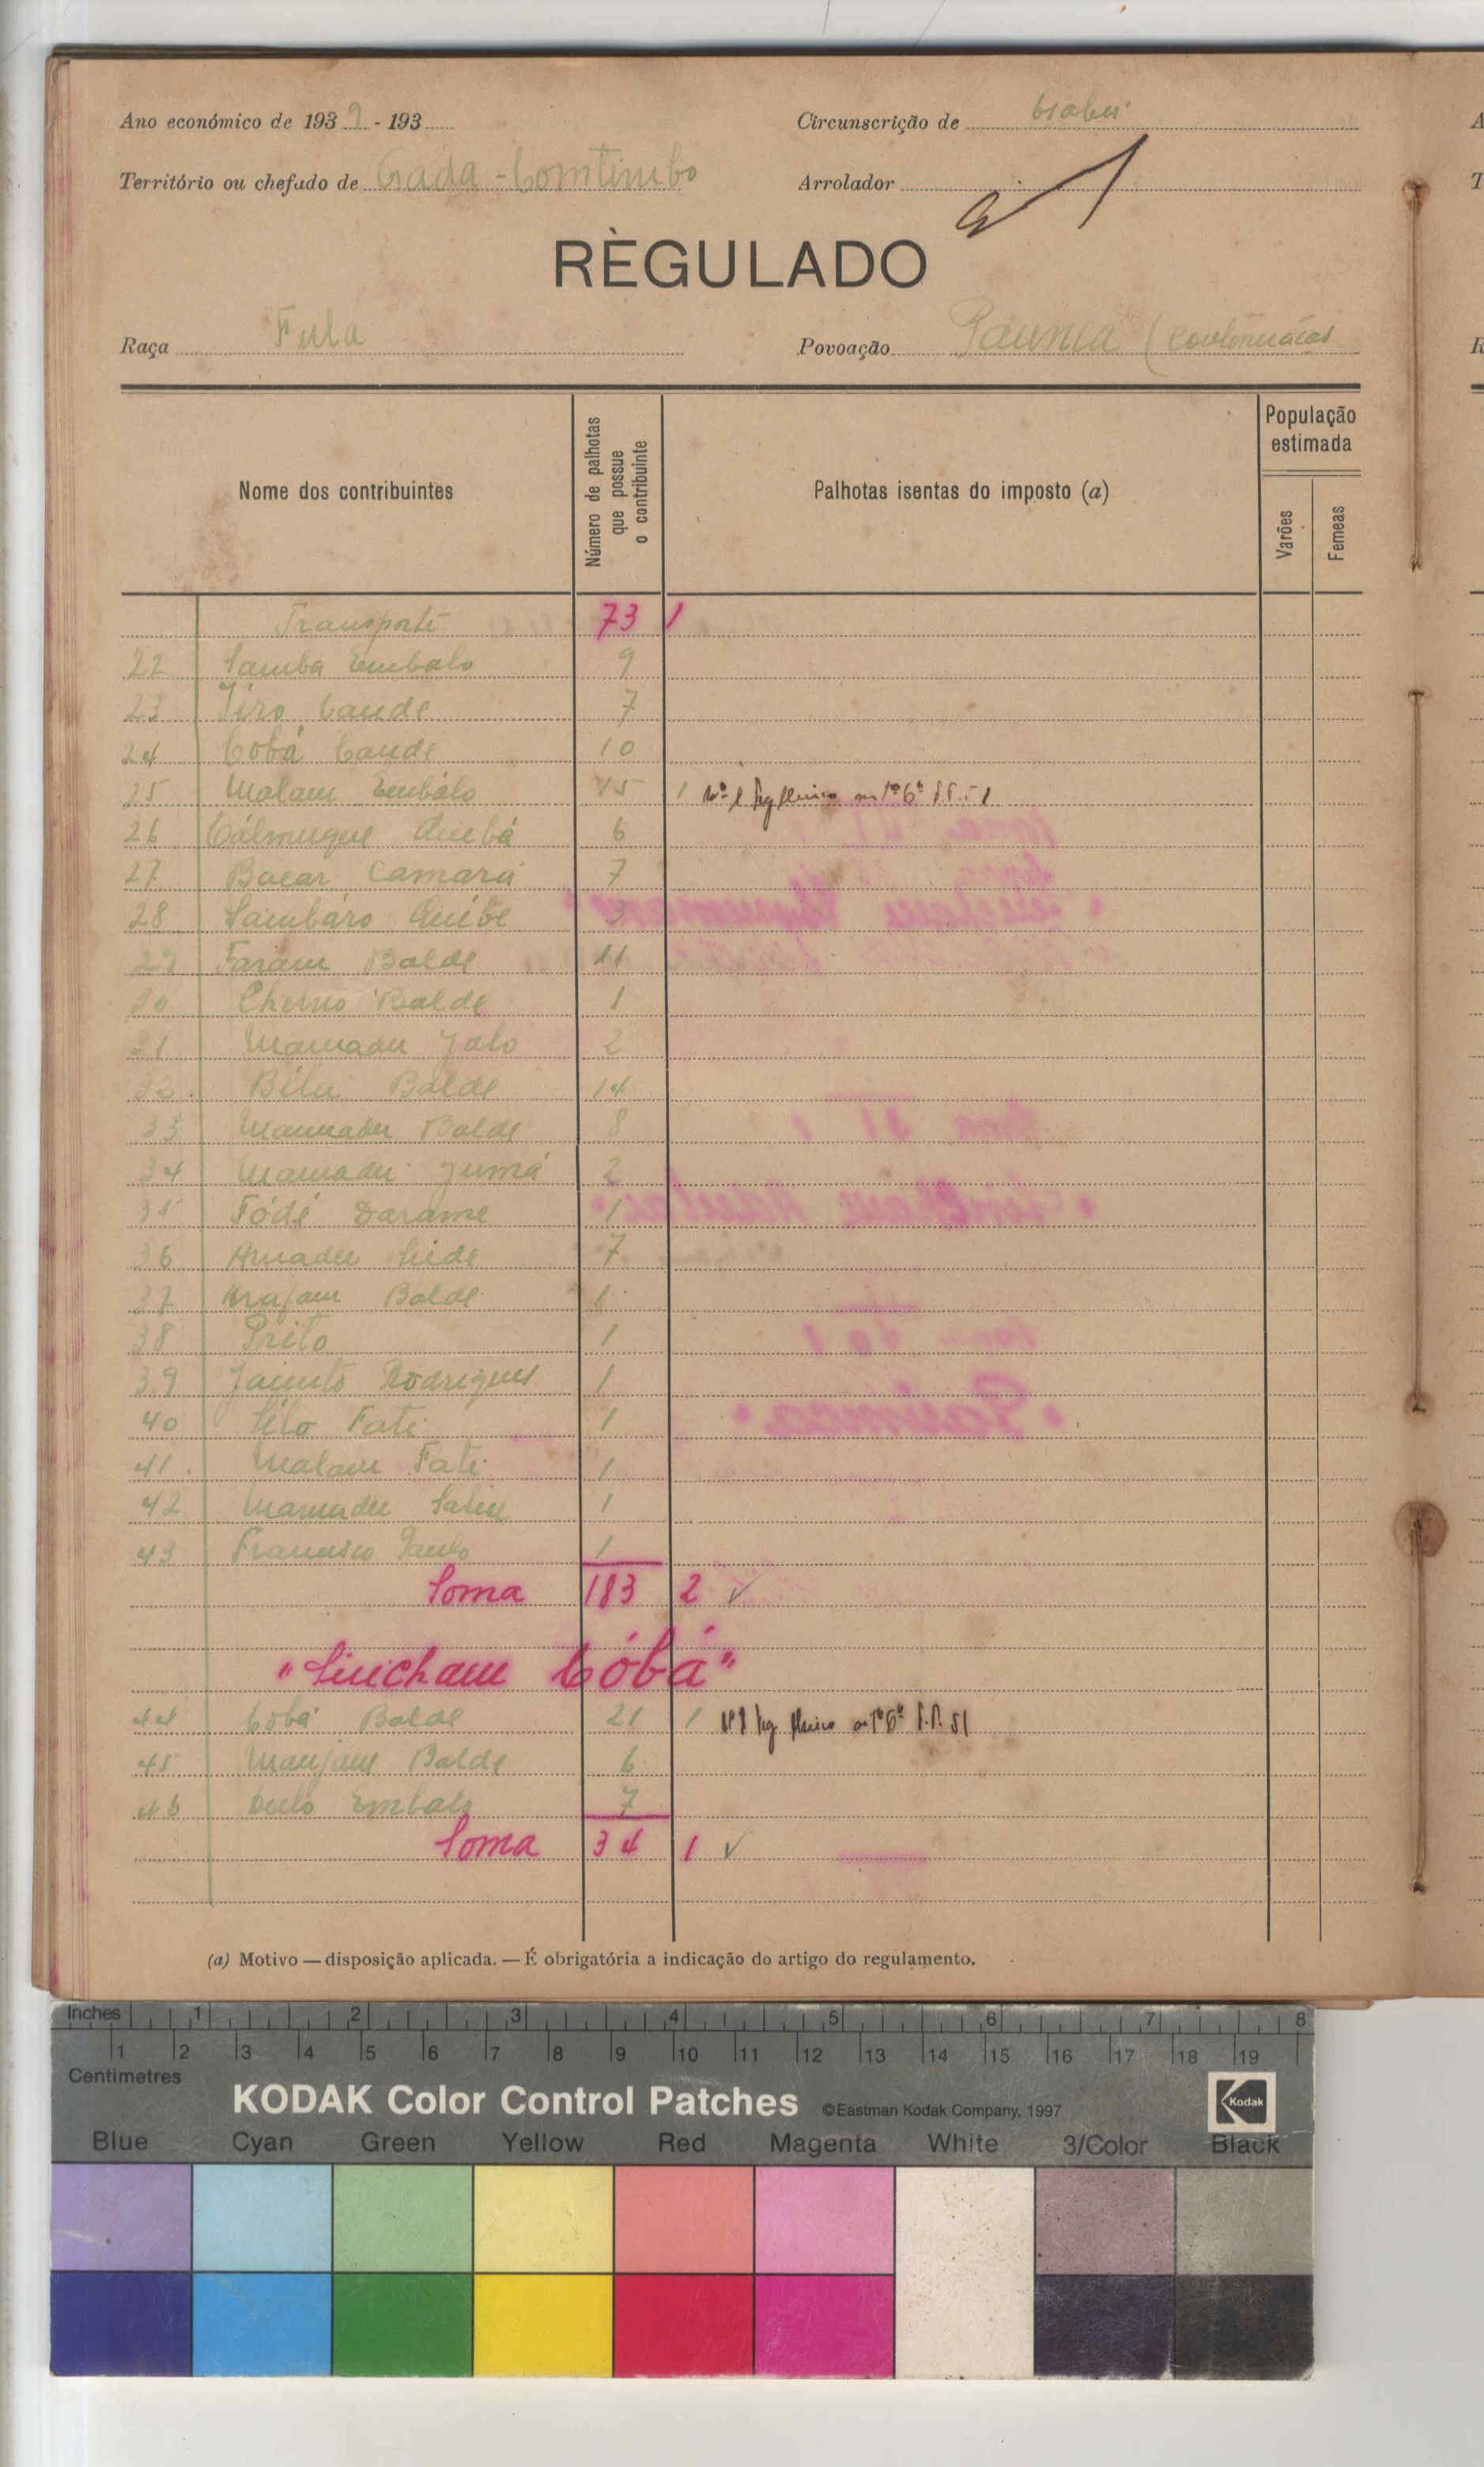 Ano económico de 1939 - 193
Circunscrição de Gabu
Território ou chefado de Gada-Comtimbo
Arrolador
RÈGULADO
Raça Fula
Povoação Paunca (Continuação
Nome dos contribuintes
Número de palhotas que possue o contribuinte
Palhotas isentas do imposto (a)
População estimada
Varões
Femeas
Transporte 73 1
22 Samba Embalo 9
23 Tiro Cande 7
24 Cobá Cande 10
25 Malam Embalo 15 1
26 6
27 Bacar Camará 7
28 Sambaro 3
29 Faram Balde 11
30 Cherno Balde 1
31 Mamadu Jalo 2
32 Bilu Balde 14
33 Mamadu Balde 8
34 Mamadu Jumá 2
35 Fódé Darame 1
36 Amadu Seide 7
37 Balde 1
38 Prito 1
39 Jacinto Rodrigues 1
40 Fati 1
41 Malam Fati 1
42 Mamadu Saliu 1
43 Francisco Paulo 1
Soma 183 2 ✓
"Sincham Cóbá"
44 Cobá Balde 21 1
45 Manjam Balde 6
46 Embalo 7
Soma 34 1 ✓
(a) Motivo — disposição aplicada. — É obrigatória a indicação do artigo do regulamento.
Inches 1 2 3 4 5 6 7 8
1 2 3 4 5 6 7 8 9 10 11 12 13 14 15 16 17 18 19
Centimetres
KODAK Color Control Patches ©Eastman Kodak Company, 1997 Kodak
Blue Cyan Green Yellow Red Magenta White 3/Color Black